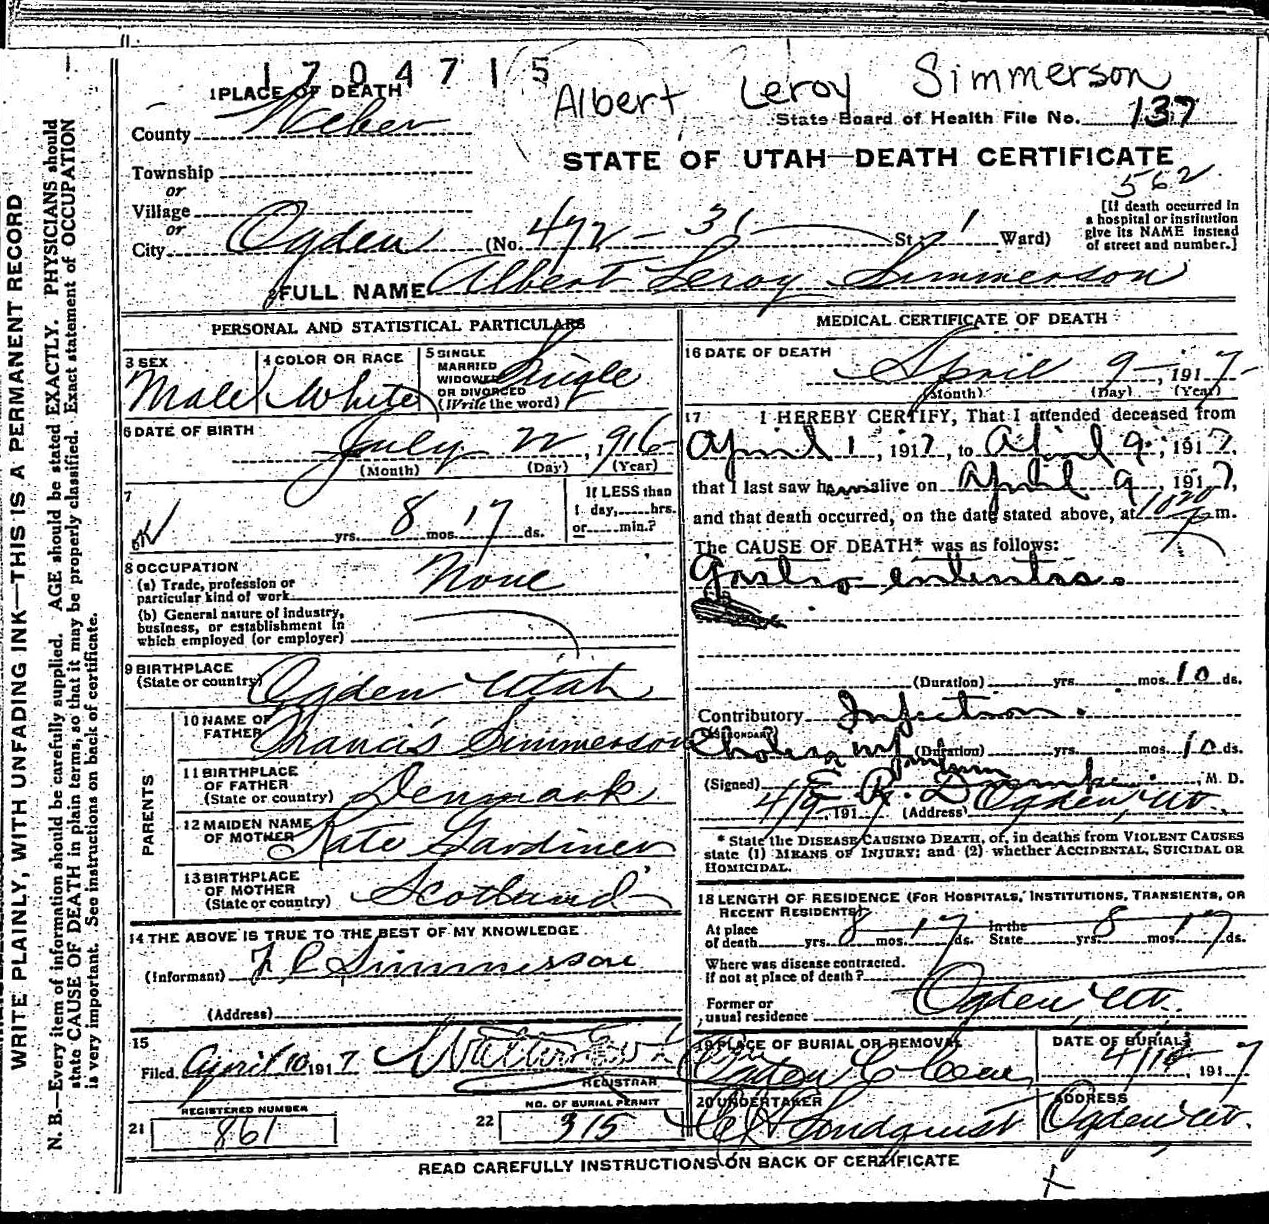 1704715
Albert Leroy Simmerson
1 PLACE OF DEATH
County Weber
State Board of Health File No. 137
STATE OF UTAH—DEATH CERTIFICATE
562
Township
or
Village
or
City Ogden (No. 472 - 31 St. 1 Ward)
[If death occurred in
a hospital or institution
give its NAME instead
of street and number.]
FULL NAME Albert Leroy Simmerson
PERSONAL AND STATISTICAL PARTICULARS
3 SEX
Male
4 COLOR OR RACE
White
5 SINGLE
MARRIED
WIDOWED
OR DIVORCED
(Write the word)
Single
6 DATE OF BIRTH
July 22, 1916
(Month) (Day) (Year)
7
yrs. 8 mos. 17 ds.
If LESS than
1 day, hrs.
or min.?
8 OCCUPATION
(a) Trade, profession or
particular kind of work
None
(b) General nature of industry,
business, or establishment in
which employed (or employer)
9 BIRTHPLACE
(State or country)
Ogden Utah
PARENTS
10 NAME OF
FATHER
Francis Simmerson
11 BIRTHPLACE
OF FATHER
(State or country)
Denmark
12 MAIDEN NAME
OF MOTHER
Kate Gardiner
13 BIRTHPLACE
OF MOTHER
(State or country)
Scotland
14 THE ABOVE IS TRUE TO THE BEST OF MY KNOWLEDGE
(Informant) Simmerson
(Address)
15
Filed April 10 1917
REGISTRAR
REGISTERED NUMBER
21 861
NO. OF BURIAL PERMIT
22 315
MEDICAL CERTIFICATE OF DEATH
16 DATE OF DEATH
April 9, 1917
(Month) (Day) (Year)
17 I HEREBY CERTIFY, That I attended deceased from
April 1, 1917, to April 9, 1917,
that I last saw him alive on April 9, 1917,
and that death occurred, on the date stated above, at m.
The CAUSE OF DEATH* was as follows:
Gastro enteritis.
(Duration) yrs. mos. 10 ds.
Contributory Infection.
(SECONDARY)
Cholera Infantum
(Duration) yrs. mos. 10 ds.
(Signed) M. D.
4/9 1917 (Address) Ogden, Ut.
* State the DISEASE CAUSING DEATH, or, in deaths from VIOLENT CAUSES
state (1) MEANS OF INJURY; and (2) whether ACCIDENTAL, SUICIDAL OR
HOMICIDAL.
18 LENGTH OF RESIDENCE (FOR HOSPITALS, INSTITUTIONS, TRANSIENTS, OR
RECENT RESIDENTS)
At place
of death yrs. 8 mos. 17 ds.
In the
State yrs. 8 mos. 17 ds.
Where was disease contracted.
if not at place of death?
Former or
usual residence
Ogden, Ut.
19 PLACE OF BURIAL OR REMOVAL
Ogden C Cem
DATE OF BURIAL
4/10 1917
20 UNDERTAKER
Londquist
ADDRESS
Ogden Ut.
READ CAREFULLY INSTRUCTIONS ON BACK OF CERTIFICATE
WRITE PLAINLY, WITH UNFADING INK—THIS IS A PERMANENT RECORD
N. B.—Every item of information should be carefully supplied. AGE should be stated EXACTLY. PHYSICIANS should
state CAUSE OF DEATH in plain terms, so that it may be properly classified. Exact statement of OCCUPATION
is very important. See instructions on back of certificate.